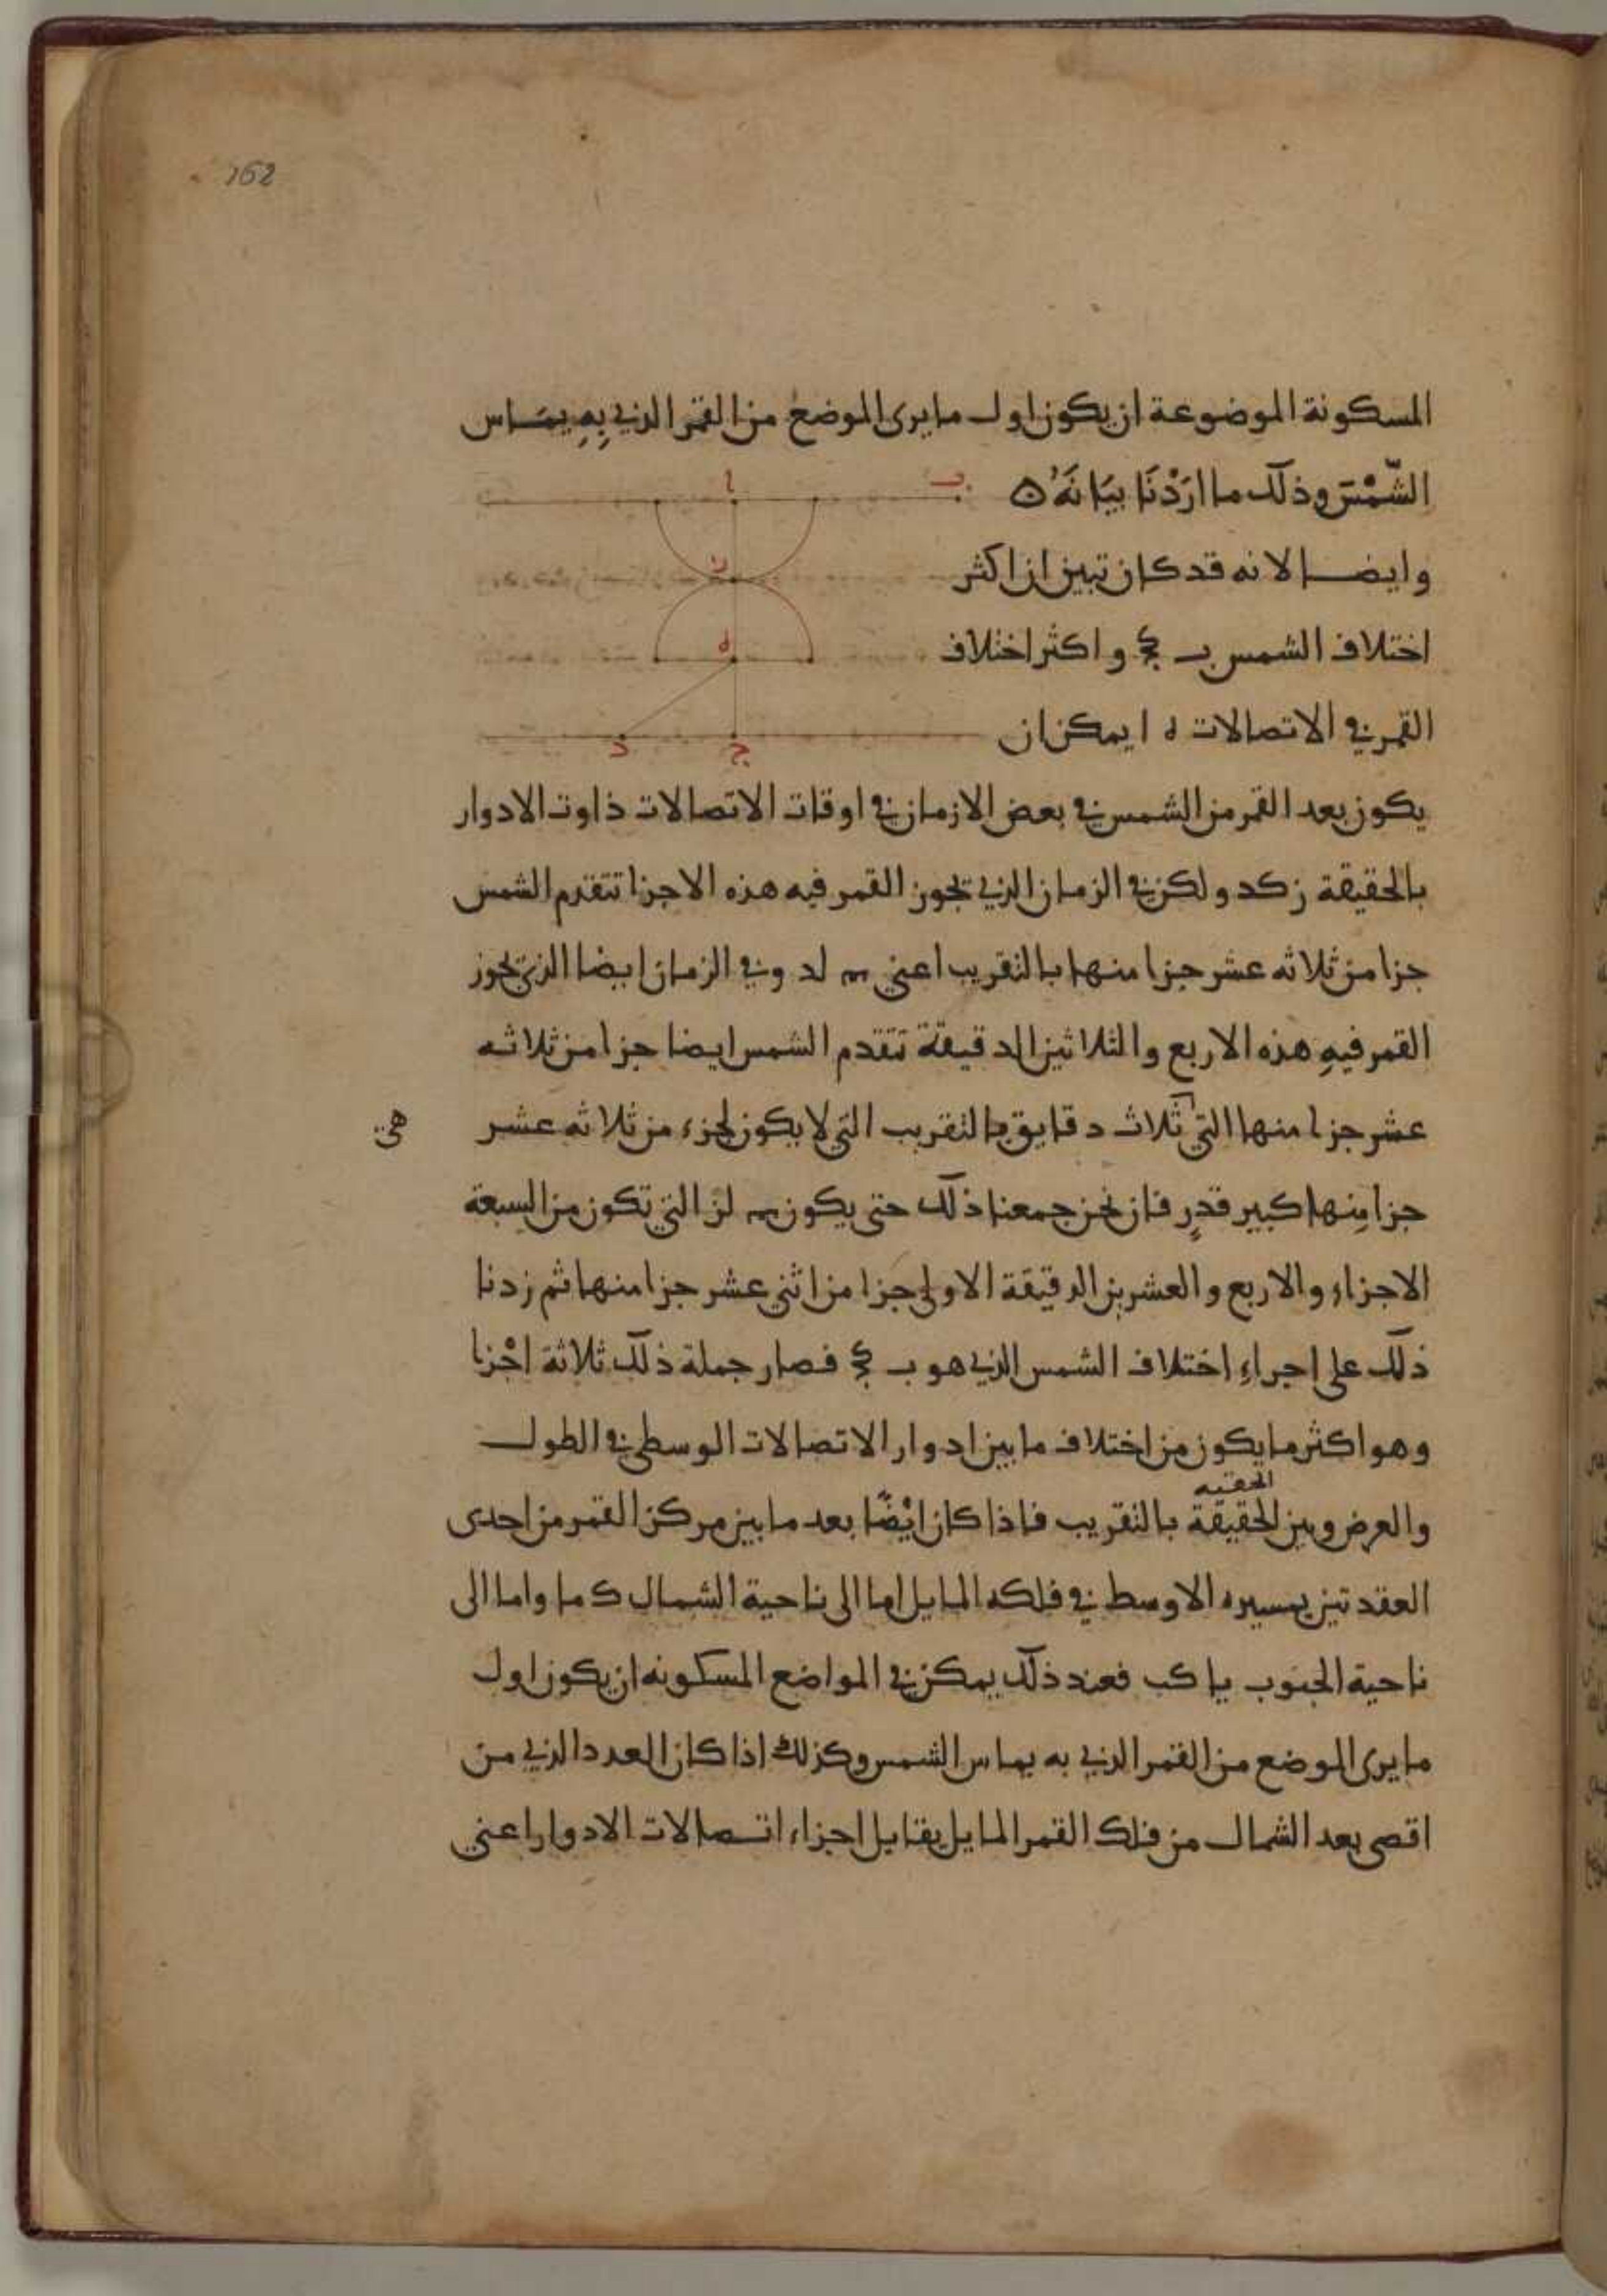 162
المسكونة الموضوعة ان يكون اول ما يرى الموضع من القمر الذي بِهِ يمَاس
الشّمْسَ وذلك ما ارَدْنَا بيَانَهُ ه
وايضا لانه قد كان تبين ان اكثر
اختلاف الشمس ب كج واكثر اختلاف
القمر في الاتصالات ه ا يمكن ان
يكون بعد القمر من الشمس في بعض الازمان في اوقات الاتصالات ذاوت الادوار
بالحقيقة ز كد ولكن في الزمان الذي تجوز القمر فيه هذه الاجزا تتقدم الشمس
جزا من ثلاثه عشر جزا منها بالتقريب اعني لد وفي الزمان ايضا الذي تجوز
القمر فيهِ هذه الاربع والثلاثين الدقيقة تتقدم الشمس ايضا جزا من ثلاثه
عشر جزا منها التي ثلاث دقايق بالتقريب التي لا يكون لجزء من ثلاثه عشر
هي
جزا مِنها كبير قدرٍ فان نحن جمعنا ذلك حتى يكون لز التي تكون من السبعة
الاجزاء والاربع والعشرين الدقيقة الاولى جزا من اثني عشر جزا منها ثم زدنا
ذلك على اجراءِ اختلاف الشمس الذي هو ب كج فصار جملة ذلك ثلاثة اجْزا
وهو اكثر ما يكون من اختلاف ما بين ادوار الاتصالات الوسطى في الطول
الحقيه
والعرض وبين الحقيقة بالتقريب فاذا كان ايْضًا بعد ما بين مركز القمر من احدى
العقدتين بمسيره الاوسط في فلكه المايل اما الى ناحية الشمال ك ما واما الى
ناحية الجنوب يا كب فعند ذلك يمكن في المواضع المسكونه ان يكون اول
ما يرى الموضع من القمر الذي به يماس الشمس وكذلك اذا كان العدد الذي من
اقصى بعد الشمال من فلك القمر المايل يقابل اجزاء اتصالات الادوار اعني
ب
ا
ر
ه
د
ج